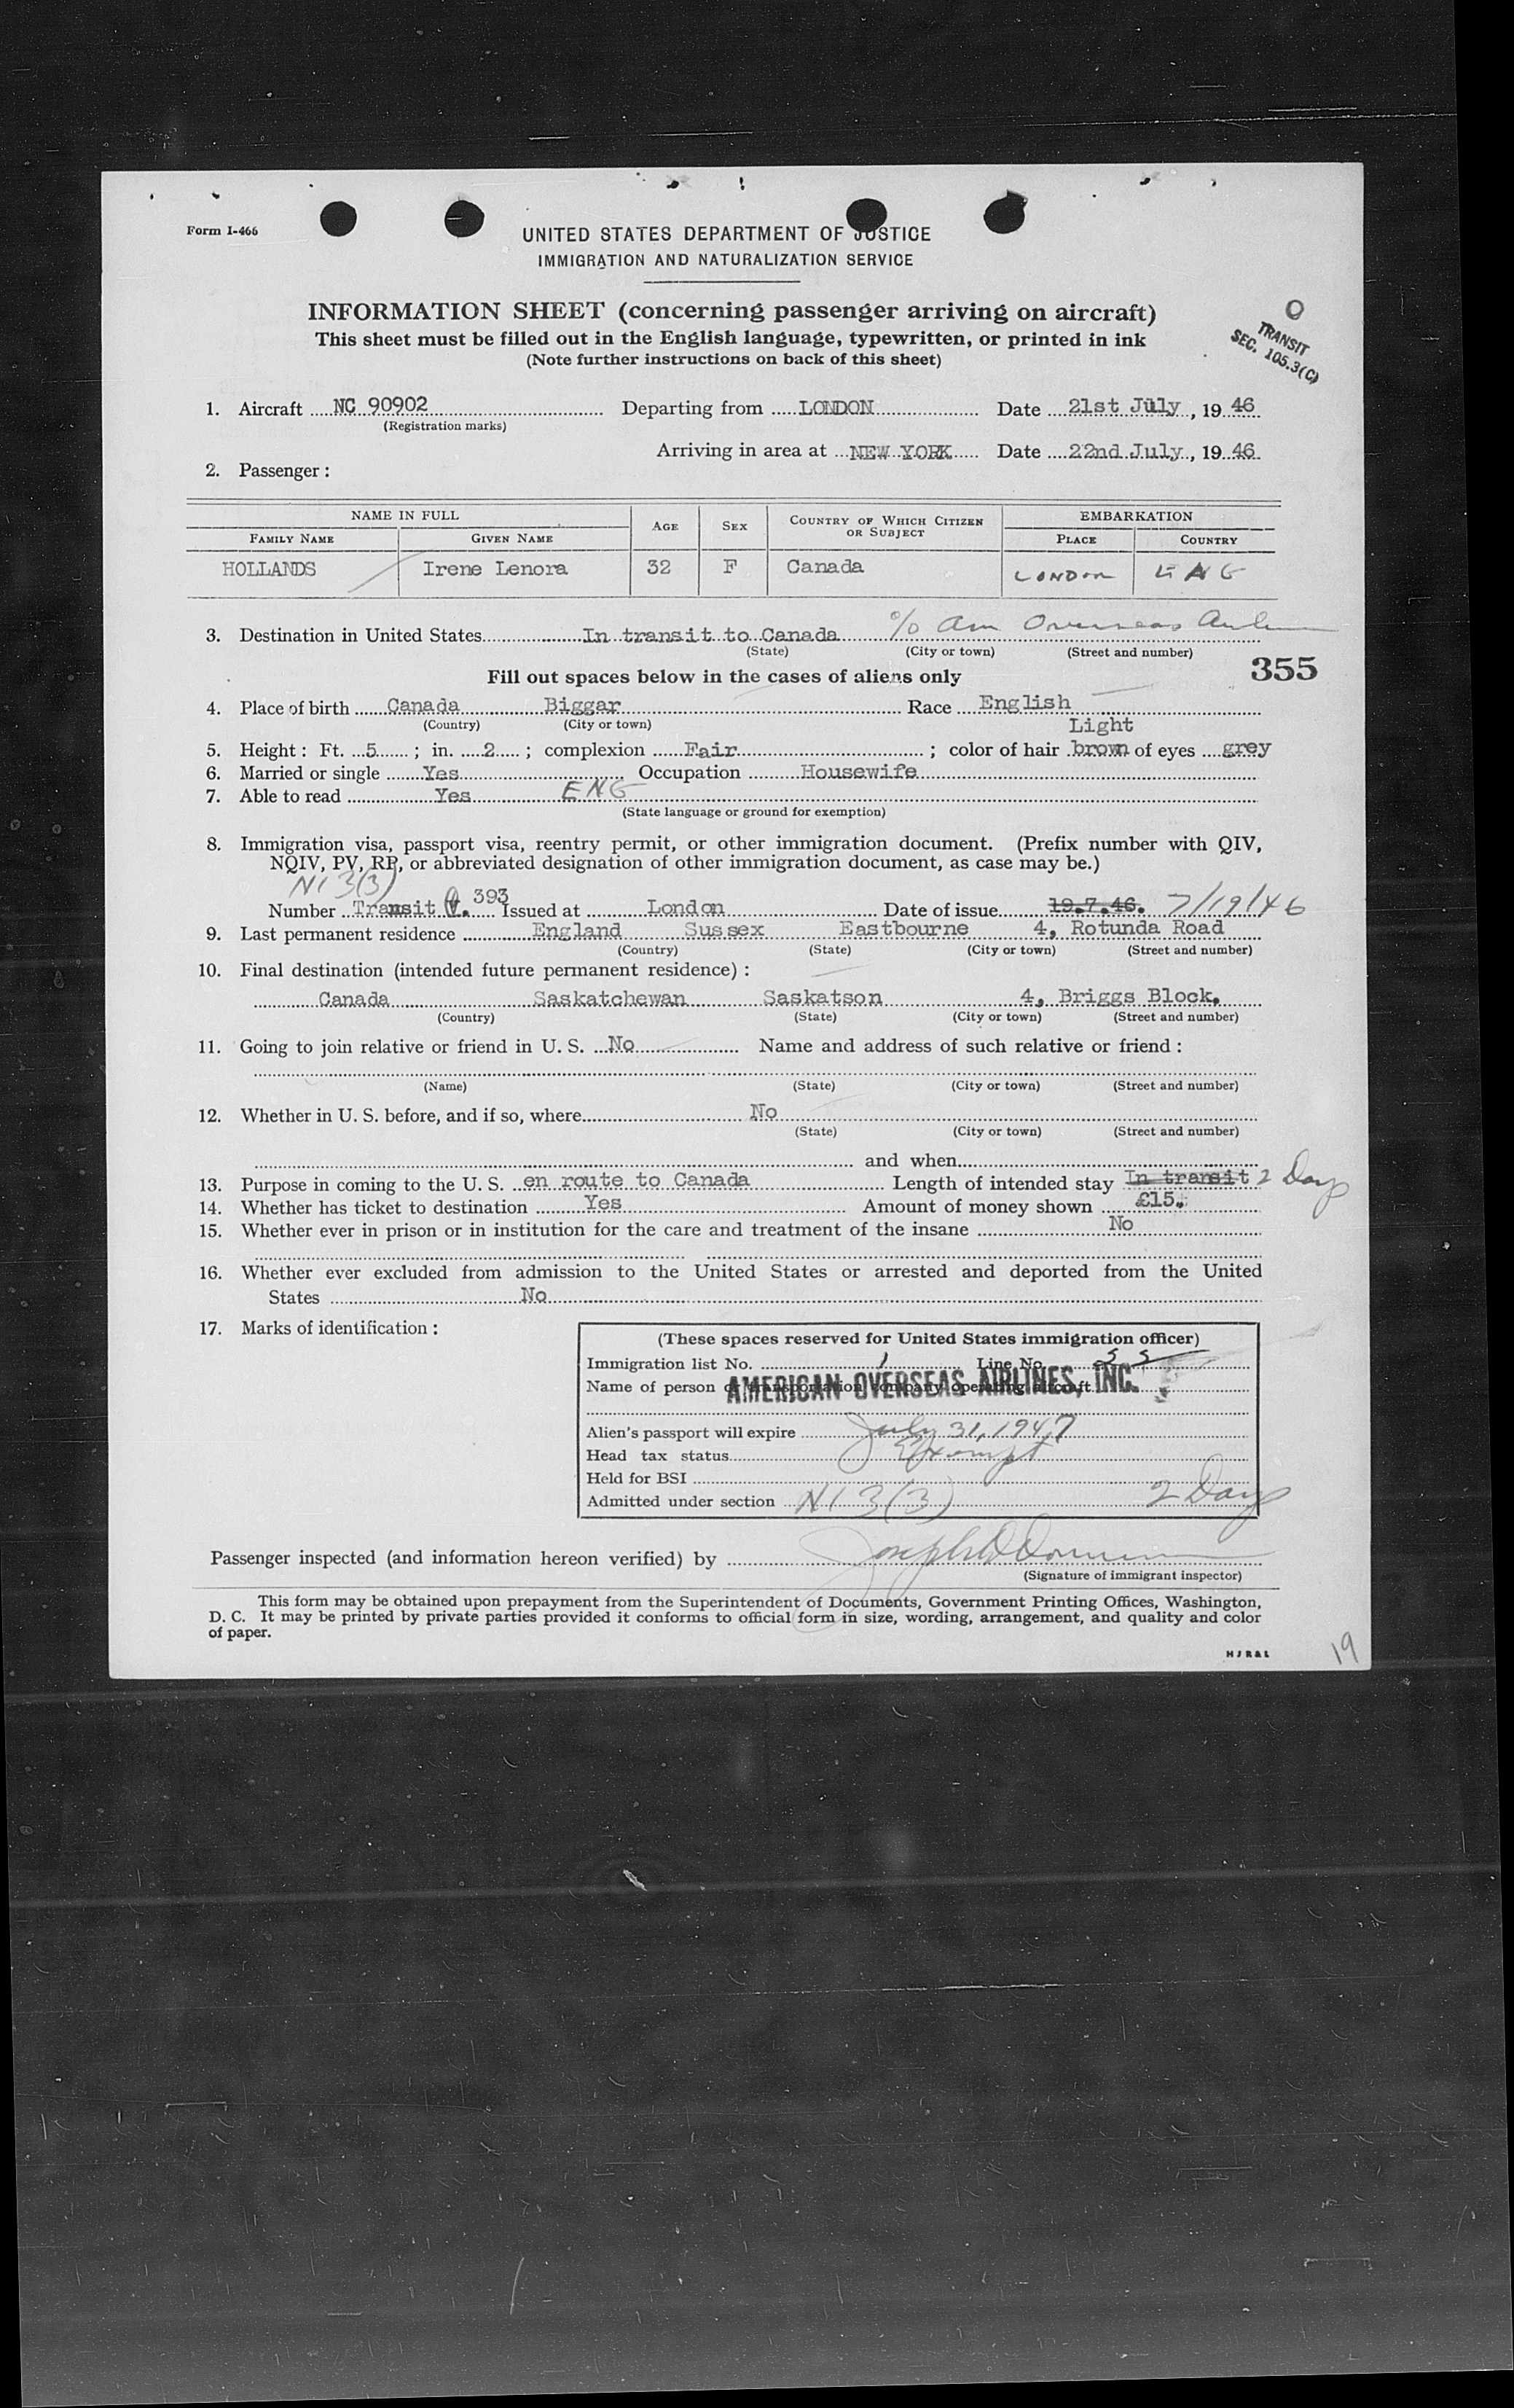 Form I-466
UNITED STATES DEPARTMENT OF JUSTICE
IMMIGRATION AND NATURALIZATION SERVICE
INFORMATION SHEET (concerning passenger arriving on aircraft)
This sheet must be filled out in the English language, typewritten, or printed in ink
(Note further instructions on back of this sheet)
O
TRANSIT
SEC. 105.3(C)
1. Aircraft NC 90902 Departing from LONDON Date 21st July, 19 46
(Registration marks)
Arriving in area at NEW YORK Date 22nd July, 19 46
2. Passenger:
NAME IN FULL AGE SEX COUNTRY OF WHICH CITIZEN OR SUBJECT EMBARKATION
FAMILY NAME GIVEN NAME PLACE COUNTRY
HOLLANDS Irene Lenora 32 F Canada LONDON ENG
3. Destination in United States In transit to Canada c/o Am Overseas
(State) (City or town) (Street and number)
355
Fill out spaces below in the cases of aliens only
4. Place of birth Canada Biggar Race English
(Country) (City or town) Light
5. Height: Ft. 5; in. 2; complexion Fair; color of hair brown of eyes grey
6. Married or single Yes Occupation Housewife
7. Able to read Yes ENG
(State language or ground for exemption)
8. Immigration visa, passport visa, reentry permit, or other immigration document. (Prefix number with QIV,
NQIV, PV, RP, or abbreviated designation of other immigration document, as case may be.)
NI 3(3)
Number Transit V. 393 Issued at London Date of issue 19.7.46. 7/19/46
9. Last permanent residence England Sussex Eastbourne 4, Rotunda Road
(Country) (State) (City or town) (Street and number)
10. Final destination (intended future permanent residence):
Canada Saskatchewan Saskatson 4, Briggs Block.
(Country) (State) (City or town) (Street and number)
11. Going to join relative or friend in U. S. No Name and address of such relative or friend:
(Name) (State) (City or town) (Street and number)
12. Whether in U. S. before, and if so, where No
(State) (City or town) (Street and number)
and when
13. Purpose in coming to the U. S. en route to Canada Length of intended stay In transit 2 Days
14. Whether has ticket to destination Yes Amount of money shown £15.
15. Whether ever in prison or in institution for the care and treatment of the insane No
16. Whether ever excluded from admission to the United States or arrested and deported from the United
States No
17. Marks of identification:
(These spaces reserved for United States immigration officer)
Immigration list No. 1 Line No.
Name of person or transportation company operating aircraft
AMERICAN OVERSEAS AIRLINES, INC.
Alien's passport will expire July 31, 1947
Head tax status Exempt
Held for BSI
Admitted under section NI 3(3) 2 Days
Passenger inspected (and information hereon verified) by
(Signature of immigrant inspector)
This form may be obtained upon prepayment from the Superintendent of Documents, Government Printing Offices, Washington,
D. C. It may be printed by private parties provided it conforms to official form in size, wording, arrangement, and quality and color
of paper.
HJR&L
19